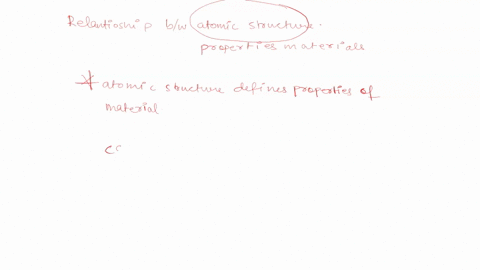 Relantioship b/w atomic structure.
properties materials
* atomic structure defines properties of
material